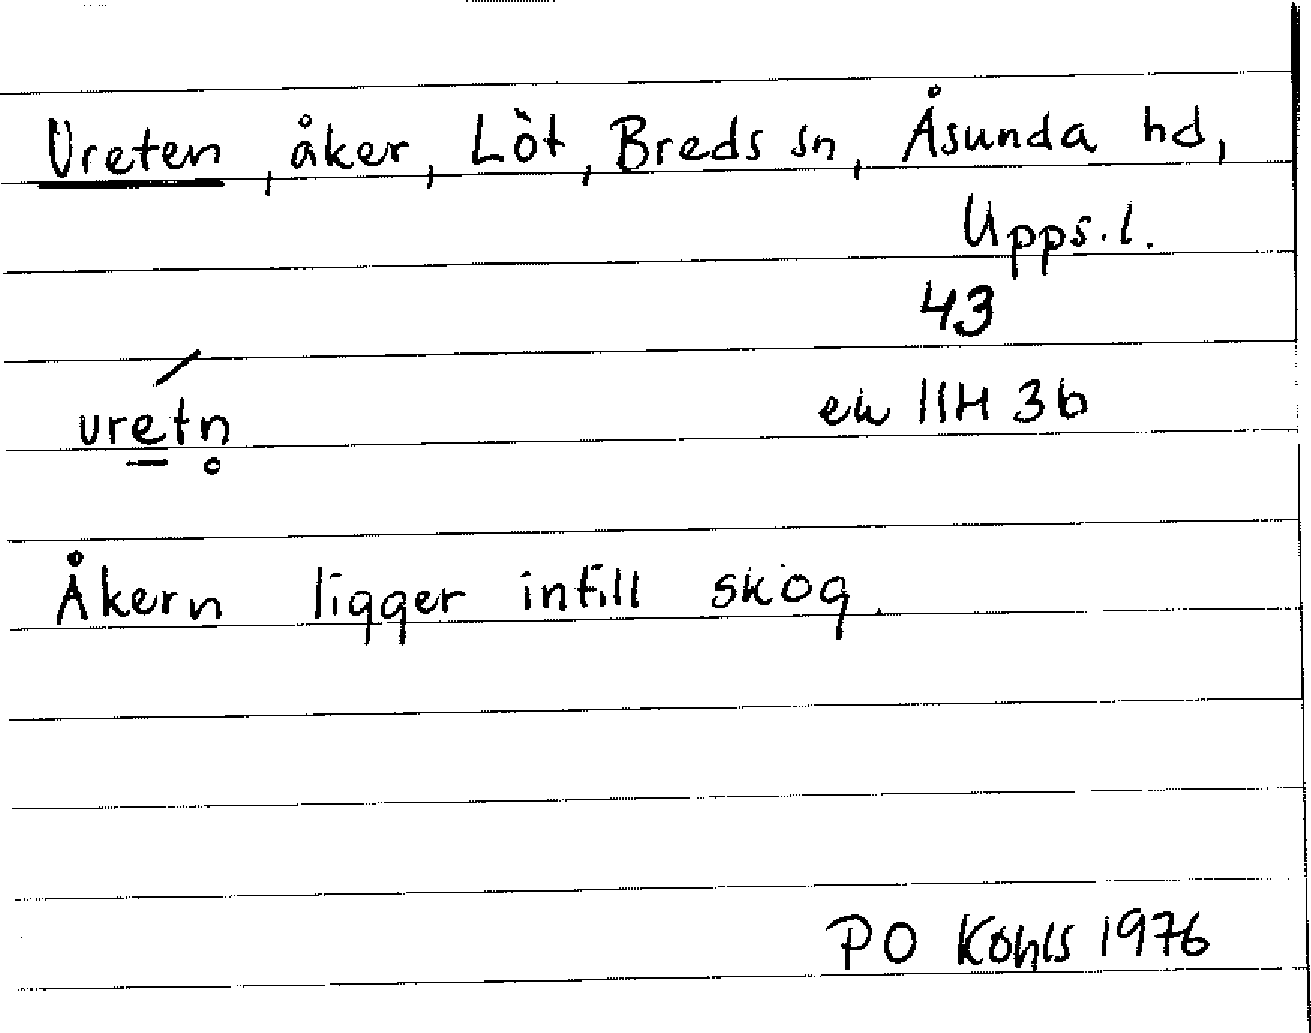 Vreten, åker, Löt, Breds sn, Åsunda hd,
Upps.l.
43
vre̱tn̥
ek 11H 3b
Åkern ligger intill skog.
PO Kohls 1976